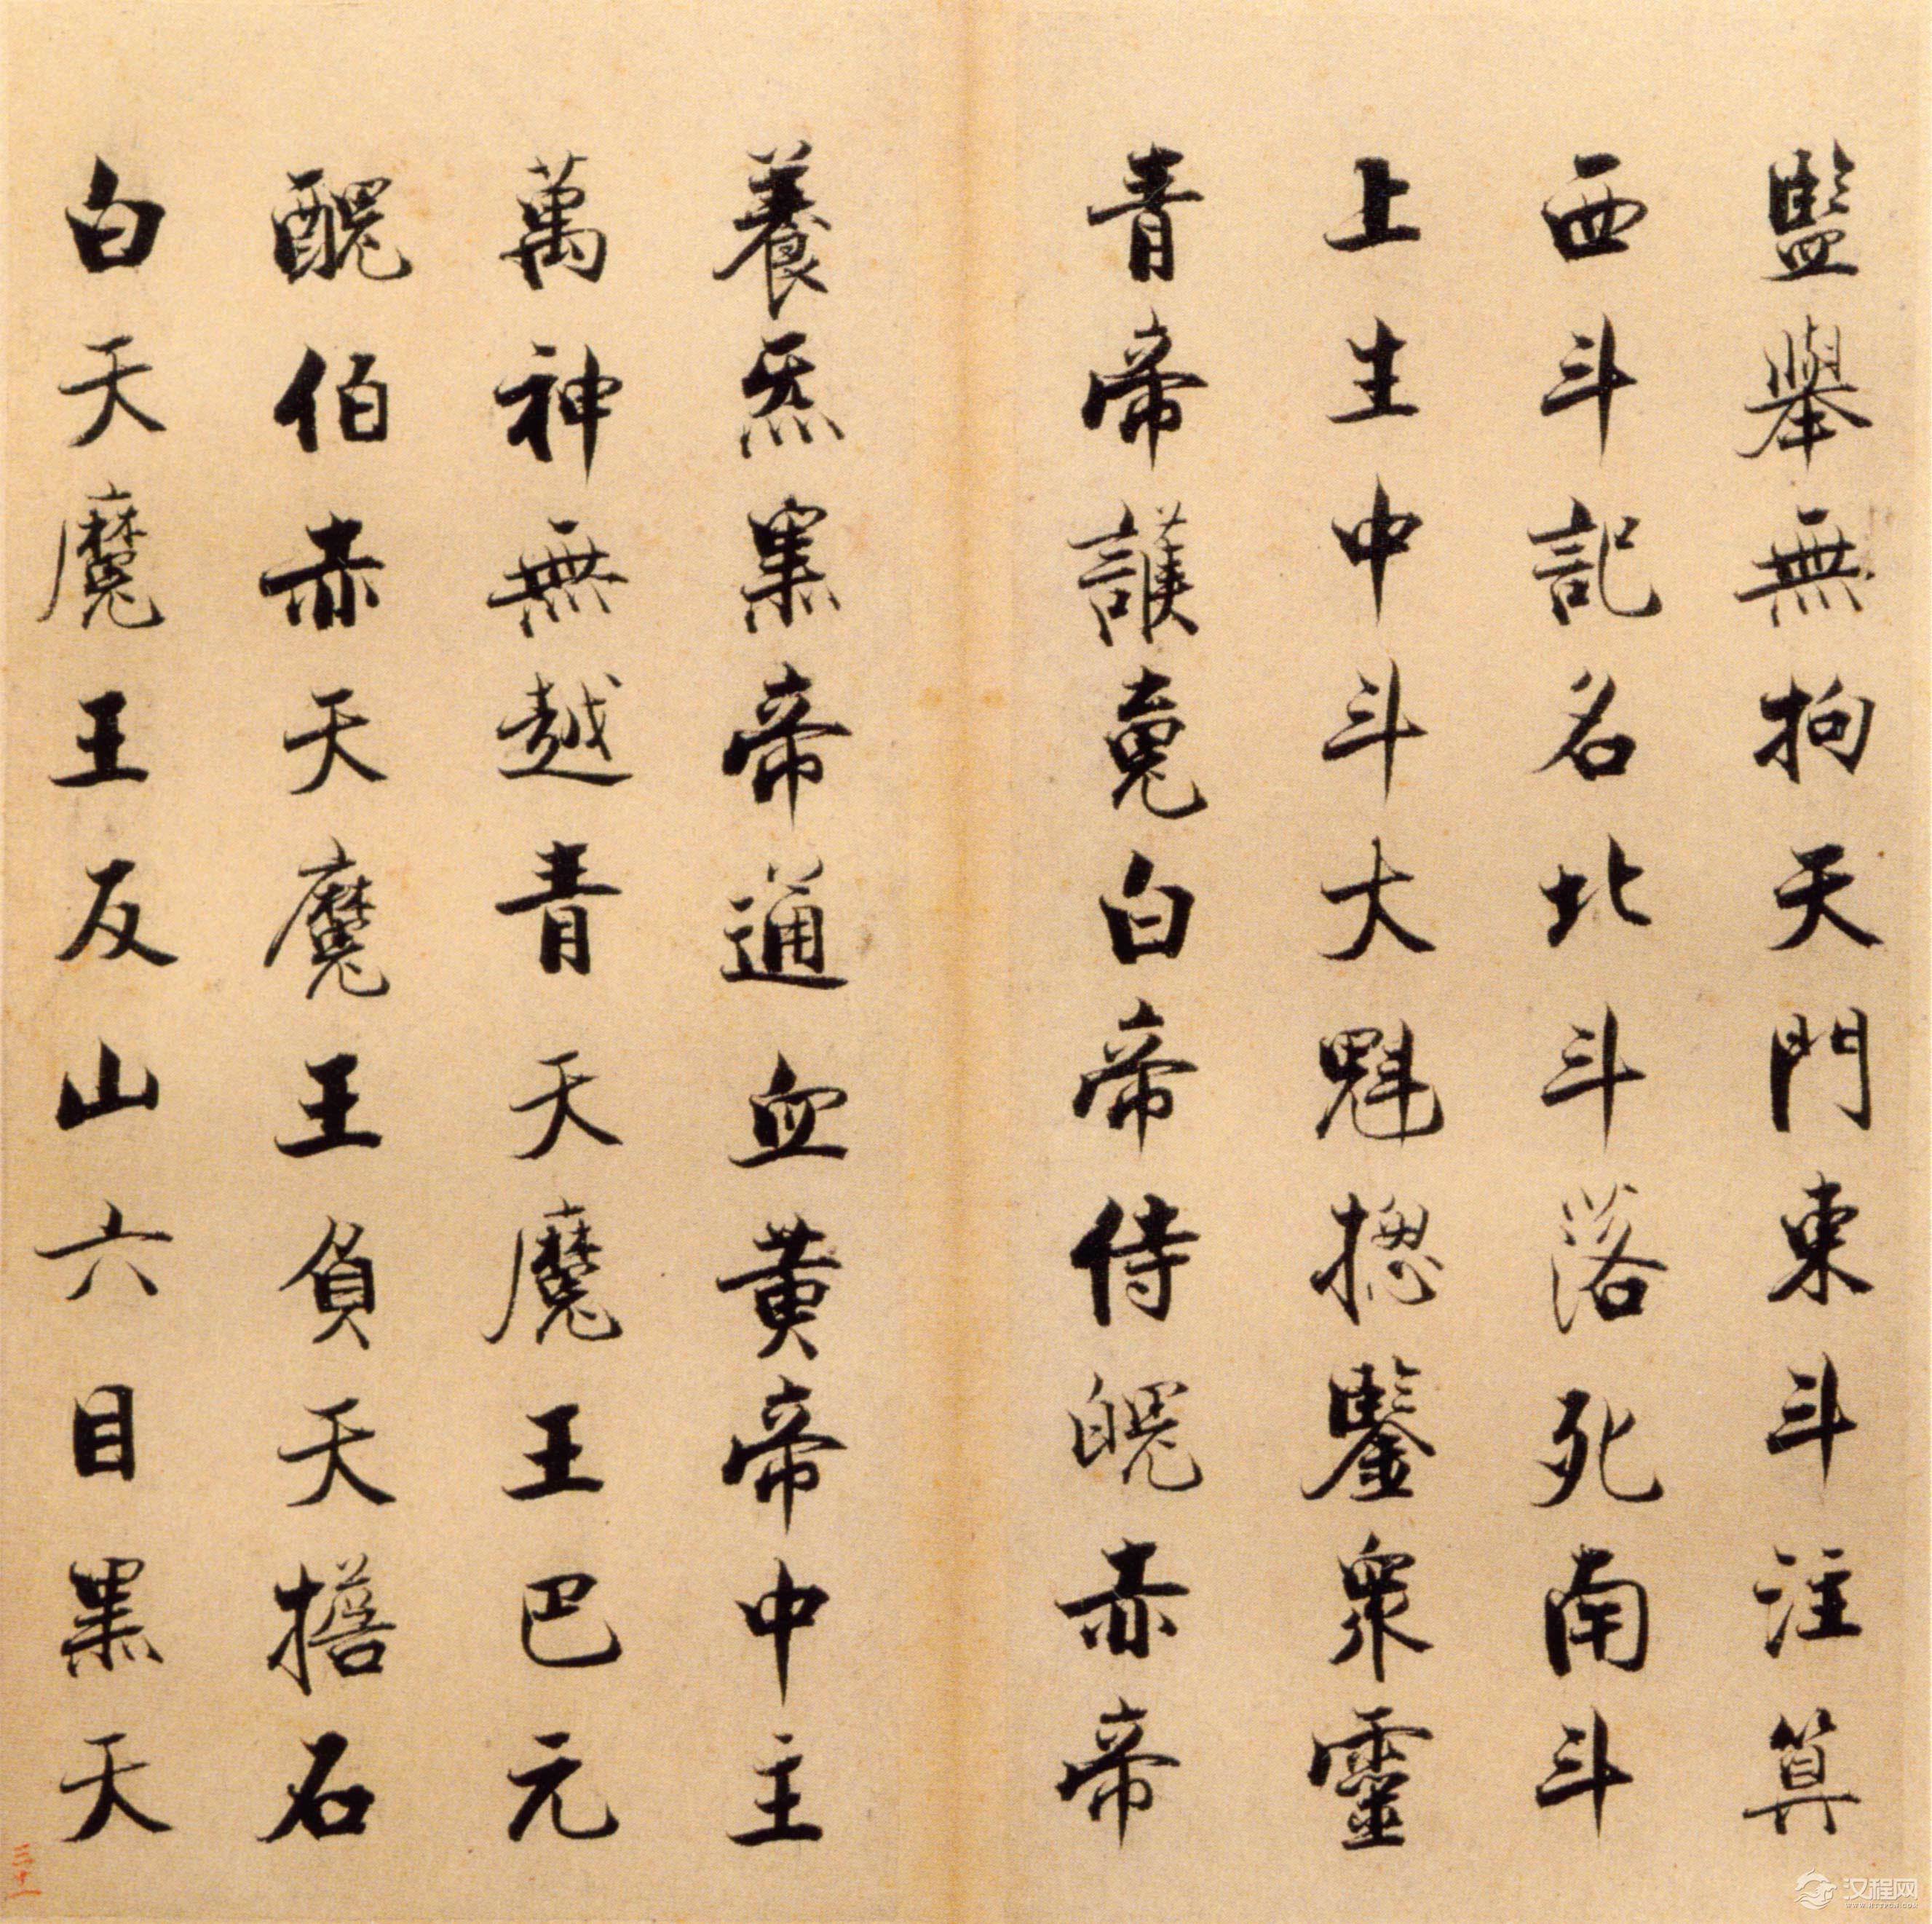 監舉無拘天門東斗注算
西斗記名北斗落死南斗
上生中斗大魁揔鑒衆靈
青帝護䰟白帝侍魄赤帝
養炁黑帝通血黄帝中主
萬神無越青天魔王巴元
醜伯赤天魔王負天擔石
白天魔王反山六目黑天
三十一
汉程网
WWW.HTTPCN.COM